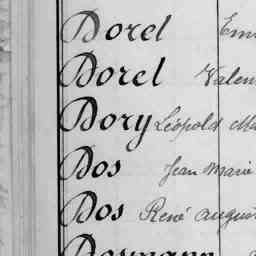 Dorel
Dorel Valen
Dory Léopold
Dos Jean Marie
Dos René August